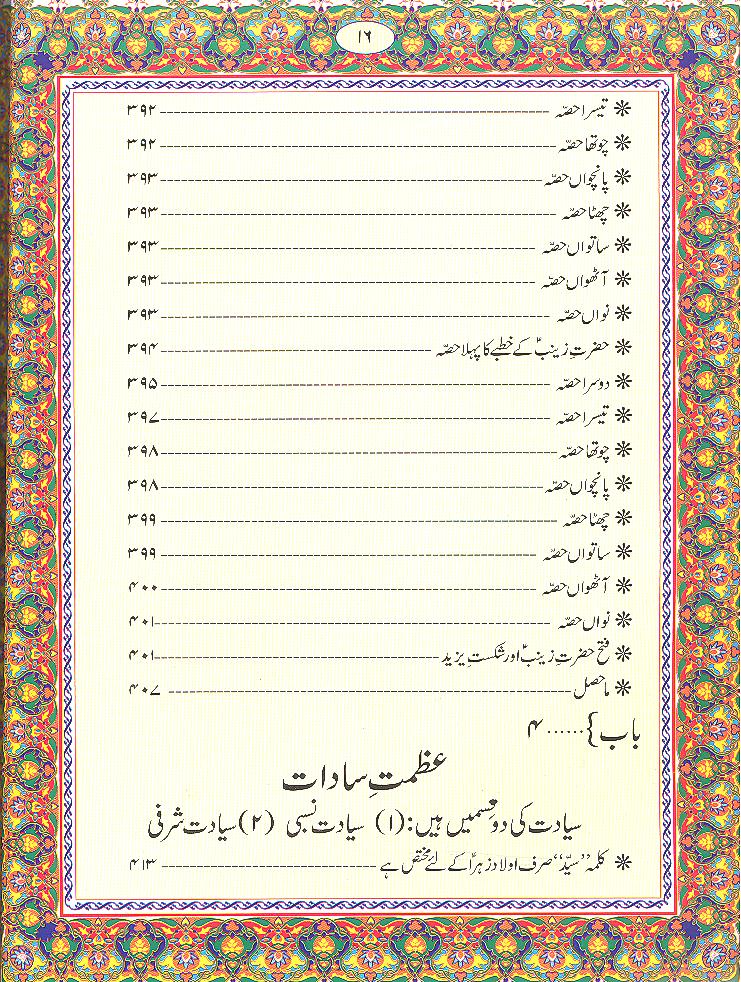 ۱۶
❋ تیسرا حصّہ ۳۹۲
❋ چوتھا حصّہ ۳۹۲
❋ پانچواں حصّہ ۳۹۳
❋ چھٹا حصّہ ۳۹۳
❋ ساتواں حصّہ ۳۹۳
❋ آٹھواں حصّہ ۳۹۳
❋ نواں حصّہ ۳۹۳
❋ حضرتِ زینبؑ کے خطبے کا پہلا حصّہ ۳۹۴
❋ دوسرا حصّہ ۳۹۵
❋ تیسرا حصّہ ۳۹۷
❋ چوتھا حصّہ ۳۹۸
❋ پانچواں حصّہ ۳۹۸
❋ چھٹا حصّہ ۳۹۹
❋ ساتواں حصّہ ۳۹۹
❋ آٹھواں حصّہ ۴۰۰
❋ نواں حصّہ ۴۰۱
❋ فتح حضرتِ زینبؑ اور شکستِ یزید ۴۰۱
❋ ماحصل ۴۰۷
باب}......۴
عظمتِ سادات
سیادت کی دو قسمیں ہیں: (۱) سیادت نسبی (۲) سیادت شرفی
❋ کلمہ ’’سیّد‘‘ صرف اولاد زہراؑ کے لئے مختص ہے ۴۱۳